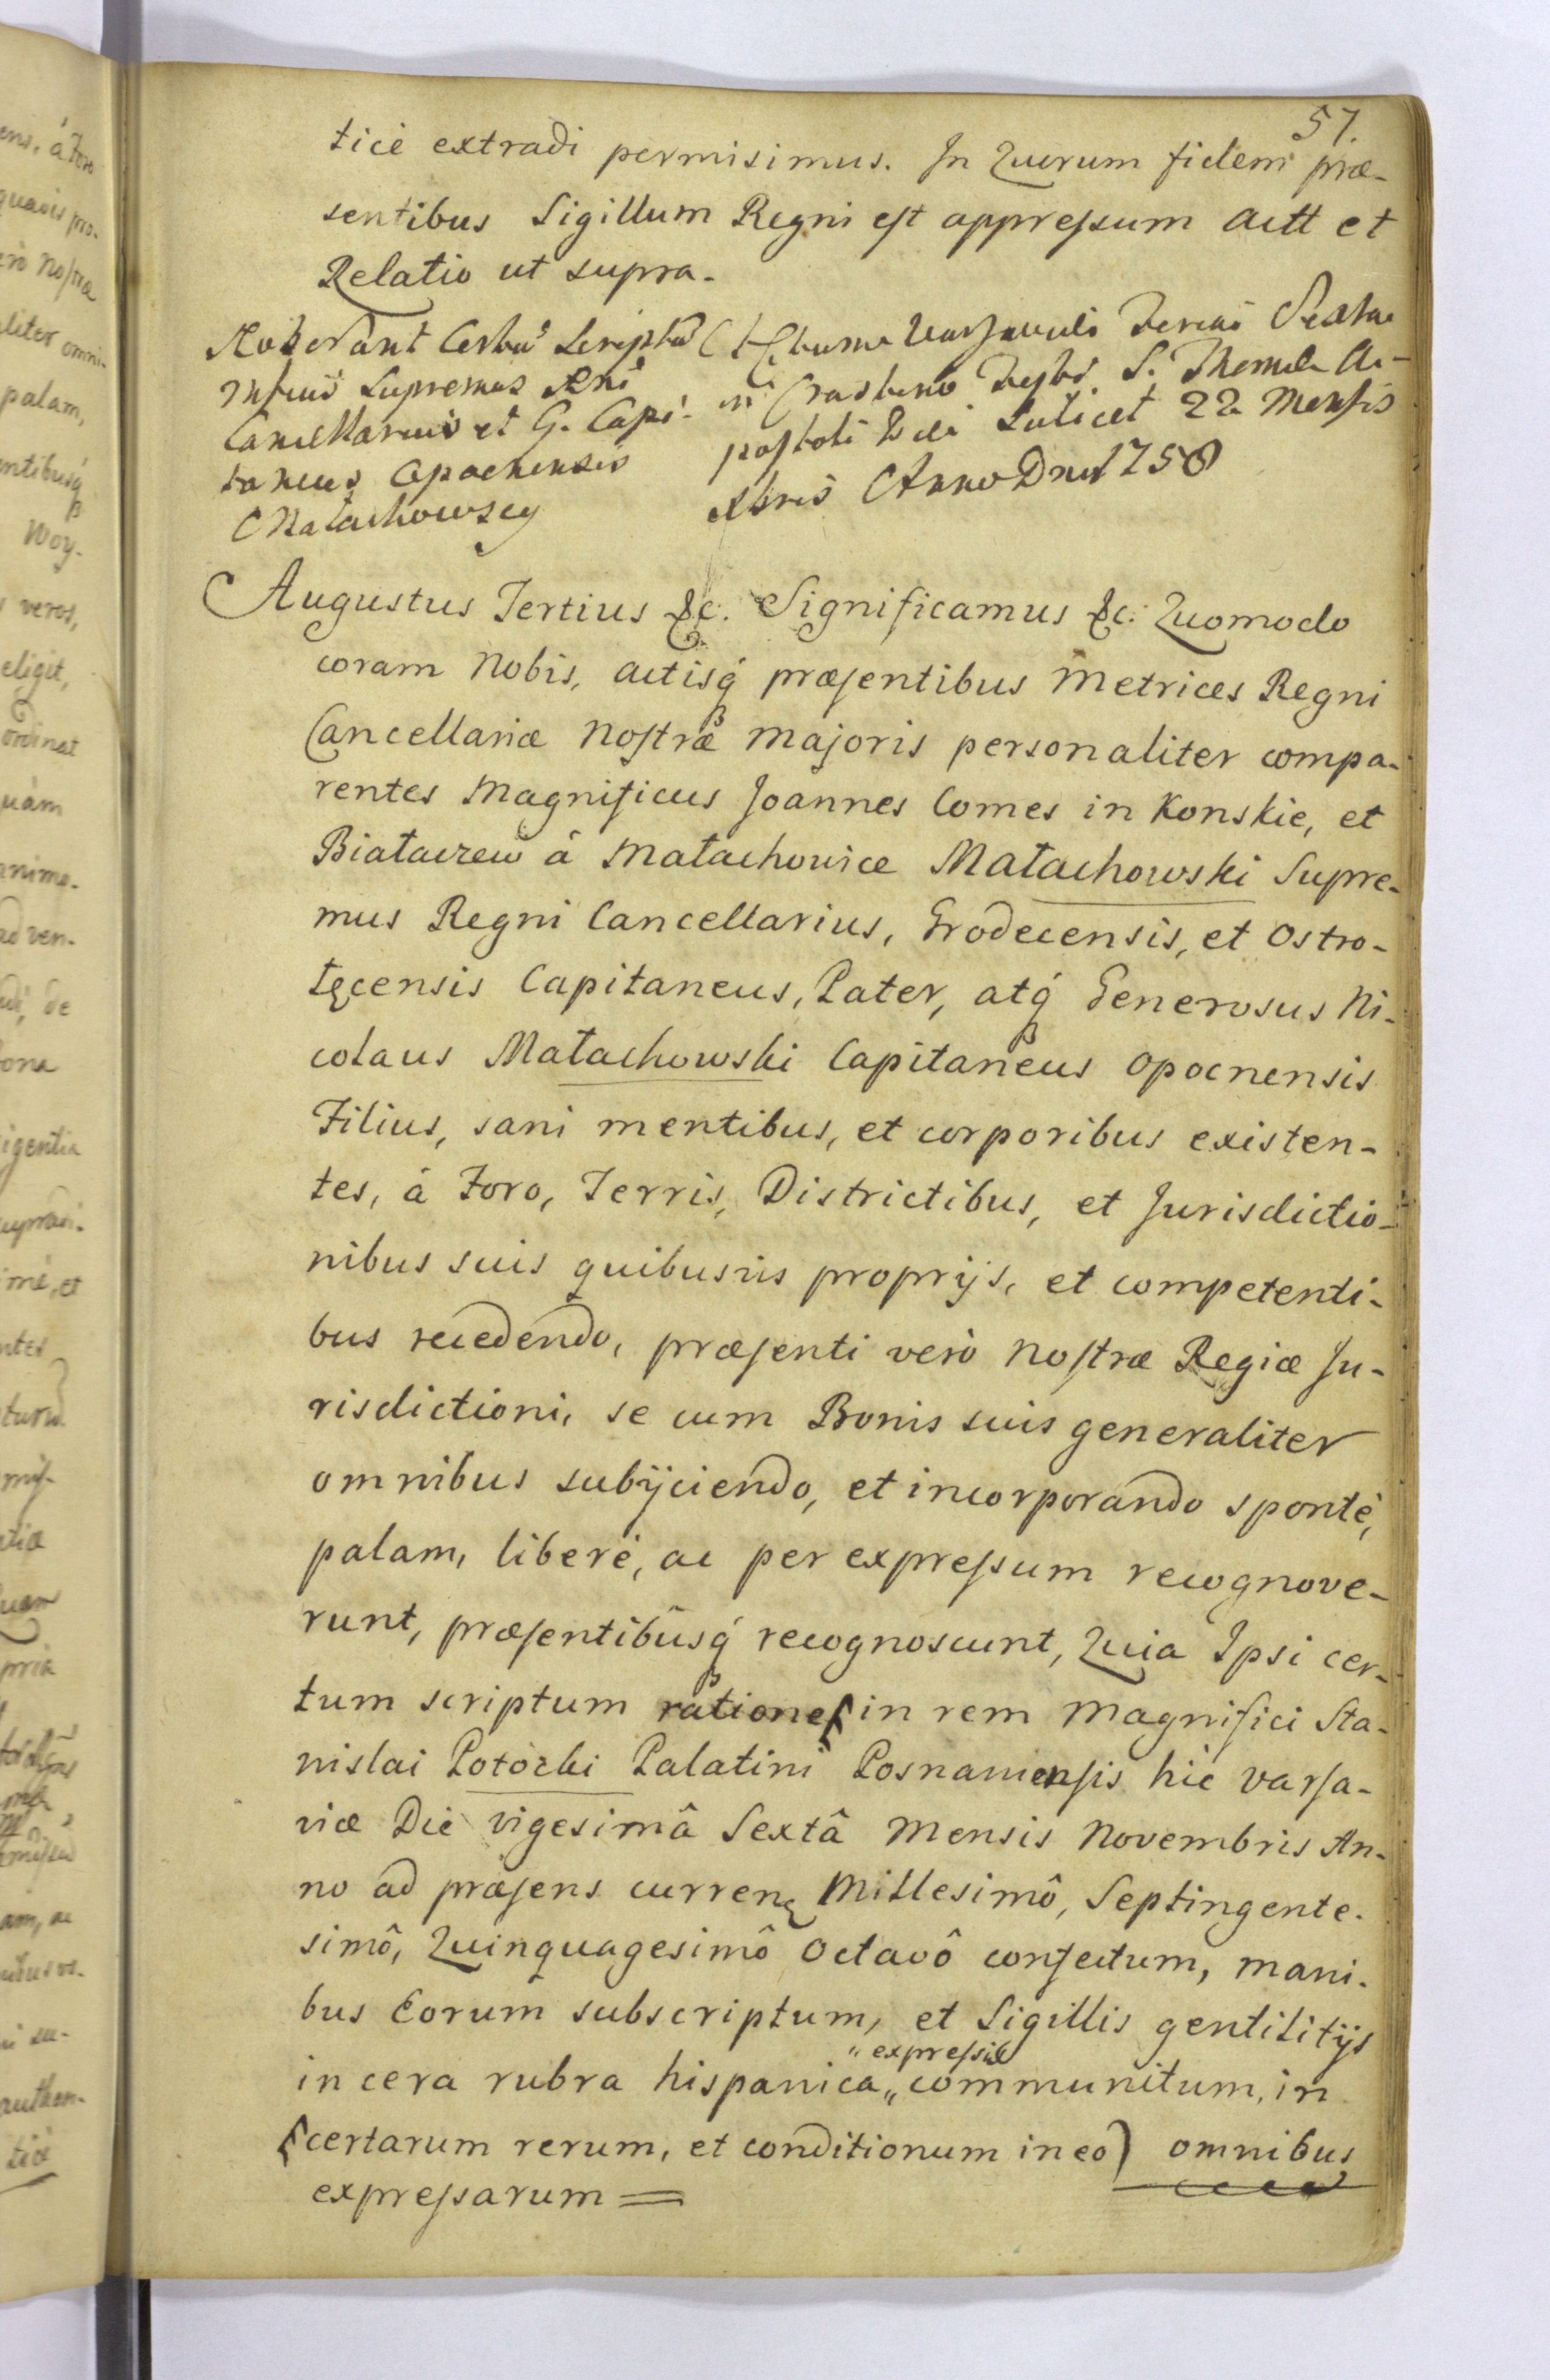 57.
ticè extradi permisimus. In Quorum fidem præ-
sentibus Sigillum Regni est appressum Actt et
Relatio ut supra.
Roborant Certũ Scriptũ
Mfcus Supremus Rñi
Cancellarius et G. Capi-
taneus Opocnensis
Małachowscy
Actum Varsaviæ Feriâ Sexta
in Crastino Festi S. Thomæ A-
postoli Die scilicet 22 Mensis
Xbris Anno Dni 1758
Augustus Tertius &c. Significamus &c: Quomodo
coram Nobis, actisq́ præsentibus Metrices Regni
Cancellariæ Nostræ Majoris personaliter compa-
rentes Magnificus Joannes Comes in Konskie, et
Białaczew á Małachowice Małachowski Supre-
mus Regni Cancellarius, Grodecensis, et Ostro-
łęcensis Capitaneus, Pater, atq́ Generosus Ni-
colaus Małachowski Capitaneus Opocnensis
Filius, sani mentibus, et corporibus existen-
tes, á Foro, Terris, Districtibus, et Jurisdictio-
nibus suis quibusvis proprijs, et competenti-
bus recedendo, præsenti verò Nostræ Regiæ Ju-
risdictioni, se cum Bonis suis generaliter
omnibus subijciendo, et incorporando spontè,
palam, liberè, ac per expressum recognove-
runt, præsentibusq́ recognoscunt, Quia Ipsi cer-
tum scriptum ratione in rem Magnifici Sta-
nislai Potocki Palatini Posnaniensis hîc Varsa-
viæ Die vigesimâ Sextâ Mensis Novembris An-
no ad præsens curren Millesimô, Septingente-
simô, Quinquagesimô Octavô confectum, mani-
bus Eorum subscriptum, et Sigillis gentilitijs
"expressis
in cera rubra hispanica,, communitum, in
(certarum rerum, et conditionum in eo) omnibus
expressarum =